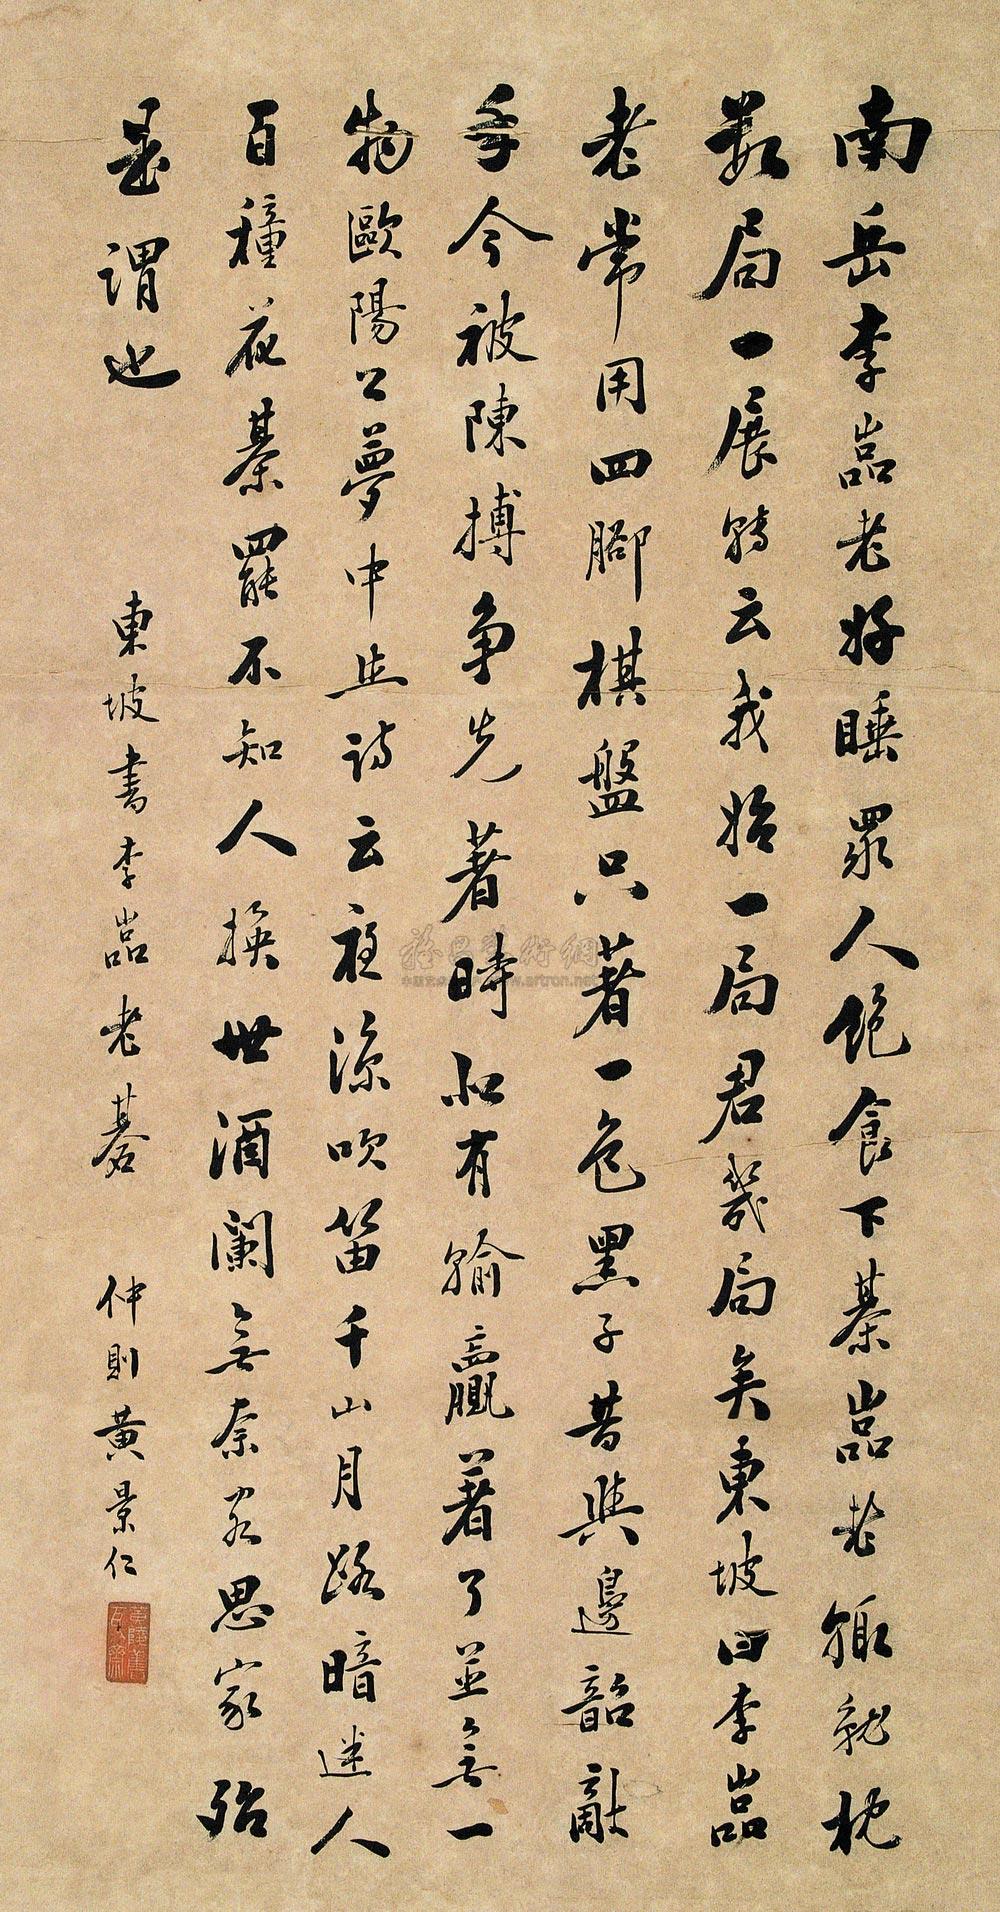 南岳李嵓老好睡眾人飽食下棊嵓老輒就枕
數局一展轉云我始一局君幾局矣東坡曰李嵓
老常用四腳棋盤只著一色黑子昔與邊韶敵
手今被陳摶爭先著時似有輸贏著了並無一
物歐陽公夢中作詩云夜涼吹笛千山月路暗迷人
百種花棊罷不知人換世酒闌無奈客思家殆
是謂也
東坡書李嵓老碁 仲則黃景仁